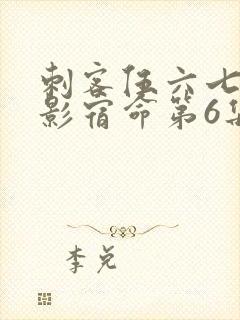 刺客伍六七
影宿命第6集
李兑